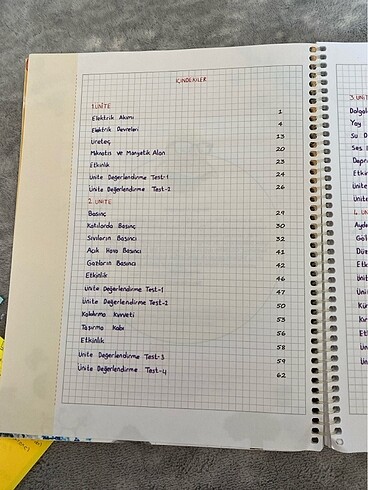 İÇİNDEKİLER
1.ÜNİTE
Elektrik Akımı 1
Elektrik Devreleri 4
Üreteç 13
Mıknatıs ve Manyetik Alan 20
Etkinlik 23
Ünite Değerlendirme Test-1 24
Ünite Değerlendirme Test-2 26
2. ÜNİTE
Basınç 29
Katılarda Basınç 30
Sıvıların Basıncı 32
Açık Hava Basıncı 41
Gazların Basıncı 42
Etkinlik 46
Ünite Değerlendirme Test-1 47
Ünite Değerlendirme Test-2 50
Kaldırma Kuvveti 53
Taşırma Kabı 56
Etkinlik 58
Ünite Değerlendirme Test-3 59
Ünite Değerlendirme Test-4 62
3. ÜNİT
Dalgal
Yay
Su D
Ses
Dep
Etkin
Ünite
Ünite
4. Ü
Ayd
Göl
Düz
Etk
Ünit
Ünit
Kür
Kır
Etk
Ün
Ün